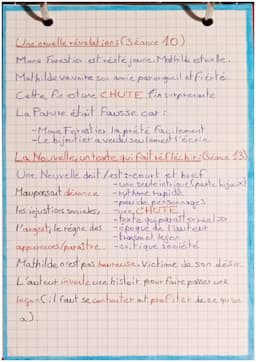 Une cruelle révélation : (Séance 10)
Mme Forestier est restée jeune. Mathilde est vieille.
Mathilde va vers son amie par orgueil et fierté.
Cette fin est une CHUTE, fin surprenante
La Parure était Fausse car :
- Mme Forestier l'a prêté facilement
- Le bijoutier a vendu seulement l'écrin.
La Nouvelle, un texte qui fait réfléchir : (Séance 13)
Une Nouvelle doit / est : - court et bref
- une seule intrigue (perte bijoux)
Maupassant dénonce - rythme rapide
- peu de personnages
les injustices sociales, - CHUTE
- texte qui parait réel
l'argent, le règne des - époque de l'auteur
- transmet leçon
apparences/paraître. - critique société
Mathilde n'est pas heureuse. Victime de son désir.
L'auteur invente une histoire pour faire passer une
leçon (il faut se contenter et profiter de ce qu'on
a).